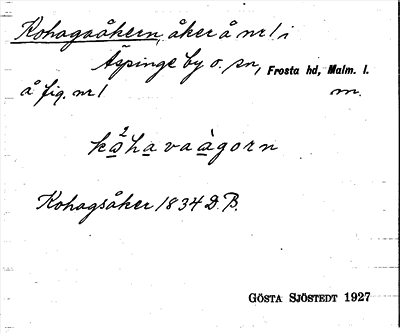 Kohagaåkern, åker å nr 1 i
Äspinge by o. sn, Frosta hd, Malm. l.
å fig. nr 1 m.
kạ²hạvaàgorn
Kohagsåker 1834 D. B.
GÖSTA SJÖSTEDT 1927